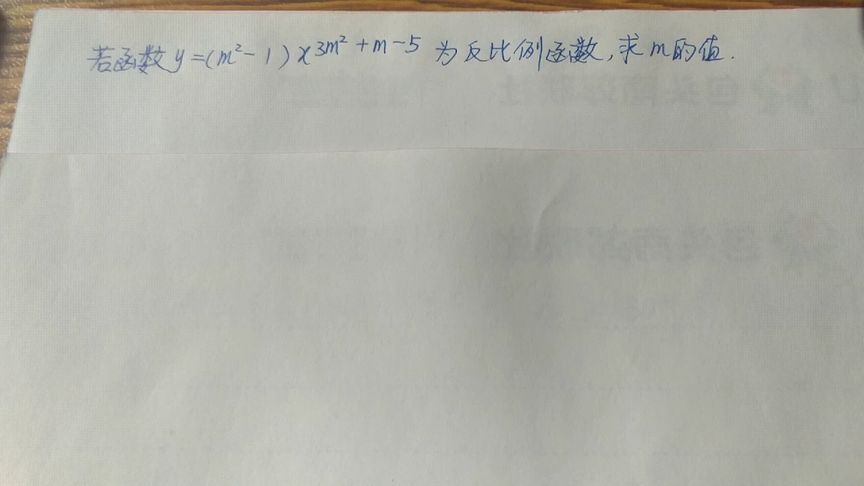 若函数y=(m²-1)x^{3m²+m-5}为反比例函数,求m的值.